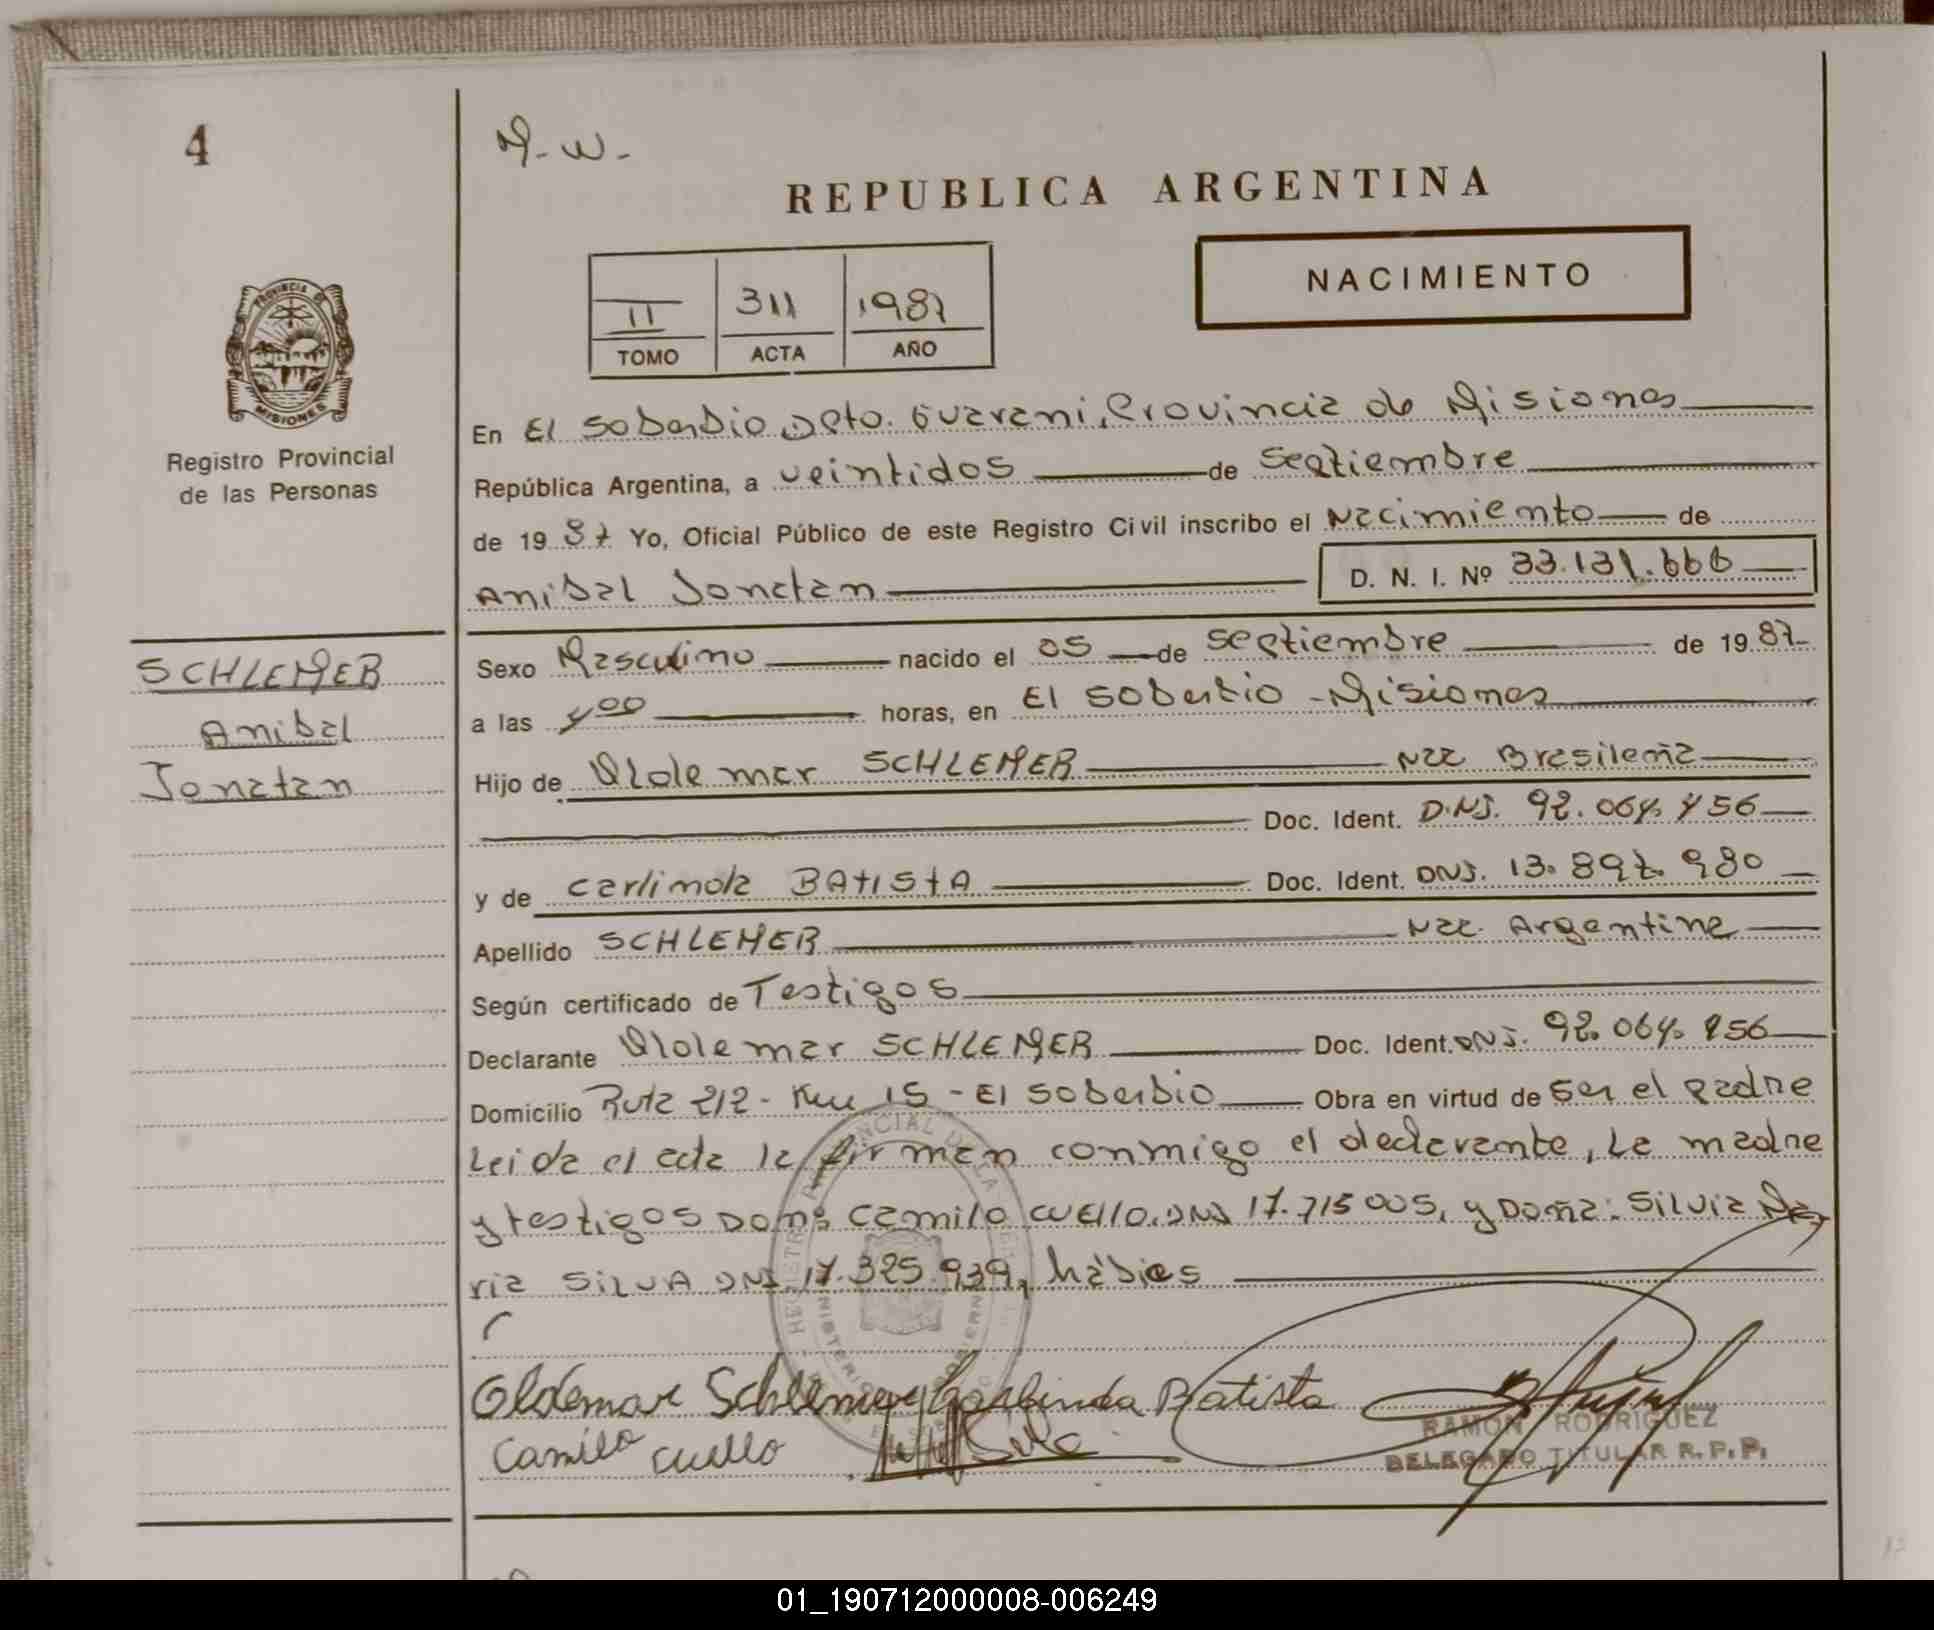 4
M. W.
REPUBLICA ARGENTINA
NACIMIENTO
II 311 1987
TOMO ACTA AÑO
PROVINCIA DE
MISIONES
Registro Provincial
de las Personas
En El Soberbio Dpto. Guarani, Provincia de Misiones
República Argentina, a veintidos de Septiembre
de 1987 Yo, Oficial Público de este Registro Civil inscribo el Nacimiento de
Anibal Jonatan D. N. I. Nº 33.131.666
SCHLEMER
Anibal
Jonatan
Sexo Masculino nacido el 05 de Septiembre de 1987
a las 4 00 horas, en El Soberbio - Misiones
Hijo de Oldemar SCHLEMER Nac Brasileña
Doc. Ident. D.N.I. 92.064.456
y de Carlinda BATISTA Doc. Ident. DNI. 13.897.980
Apellido SCHLEMER Nac. Argentina
Según certificado de Testigos
Declarante Oldemar SCHLEMER Doc. Ident. DNI. 92.064.456
Domicilio Ruta 212 - Km 15 - El Soberbio Obra en virtud de ser el padre
Leida el acta la firman conmigo el declarante, la madre
y testigos Don: Camilo CUELLO, DNI 17.715 005, y Doña: Silvia Ma
ria SILVA DNI 17.325.939, hábies
Oldemar Schlemer Carlinda Batista
Camilo Cuello Silva
RAMON RODRIGUEZ
DELEGADO TITULAR R.P.P.
01_190712000008-006249